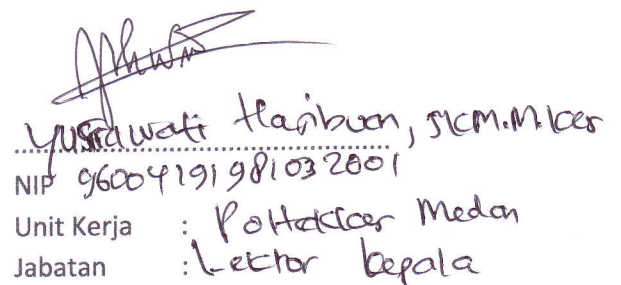 Yusrawati Hasibuan, SKM.M.Kes
NIP 96004191981032001
Unit Kerja : Poltekkes Medan
Jabatan : Lektor Kepala